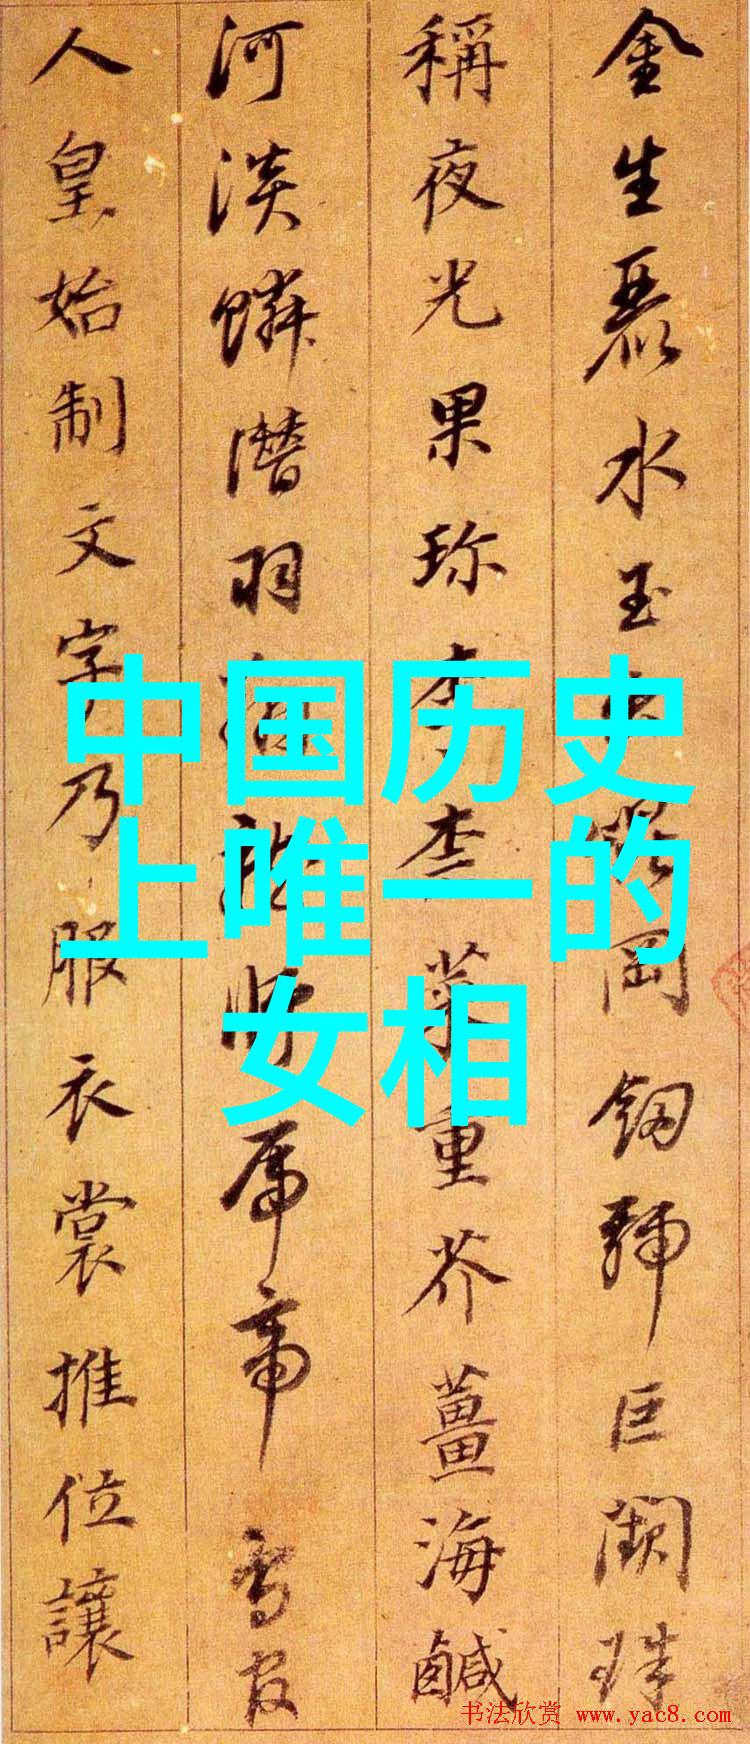 金生麗水玉出岡劍號巨闕珠
稱夜光果珍李柰菜重芥薑海鹹
河淡鱗潛羽翔龍師帝鳥官
人皇始制文字乃服衣裳推位讓
中国历史
上唯一的
女相
书法欣赏 www.yac8.com